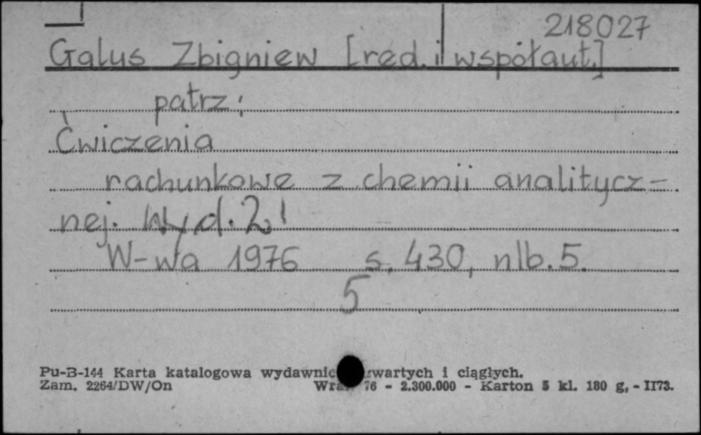 218027
Galus Zbigniew [red. i współaut.]
patrz:
Ćwiczenia
rachunkowe z chemii analitycz=
nej. Wyd. 2!
W-wa 1976 s. 430, nlb. 5.
5
Pu-B-144 Karta katalogowa wydawnic wartych i ciągłych.
Zam. 2264/DW/On 76 - 2.300.000 - Karton 5 kl. 180 g, - II73.